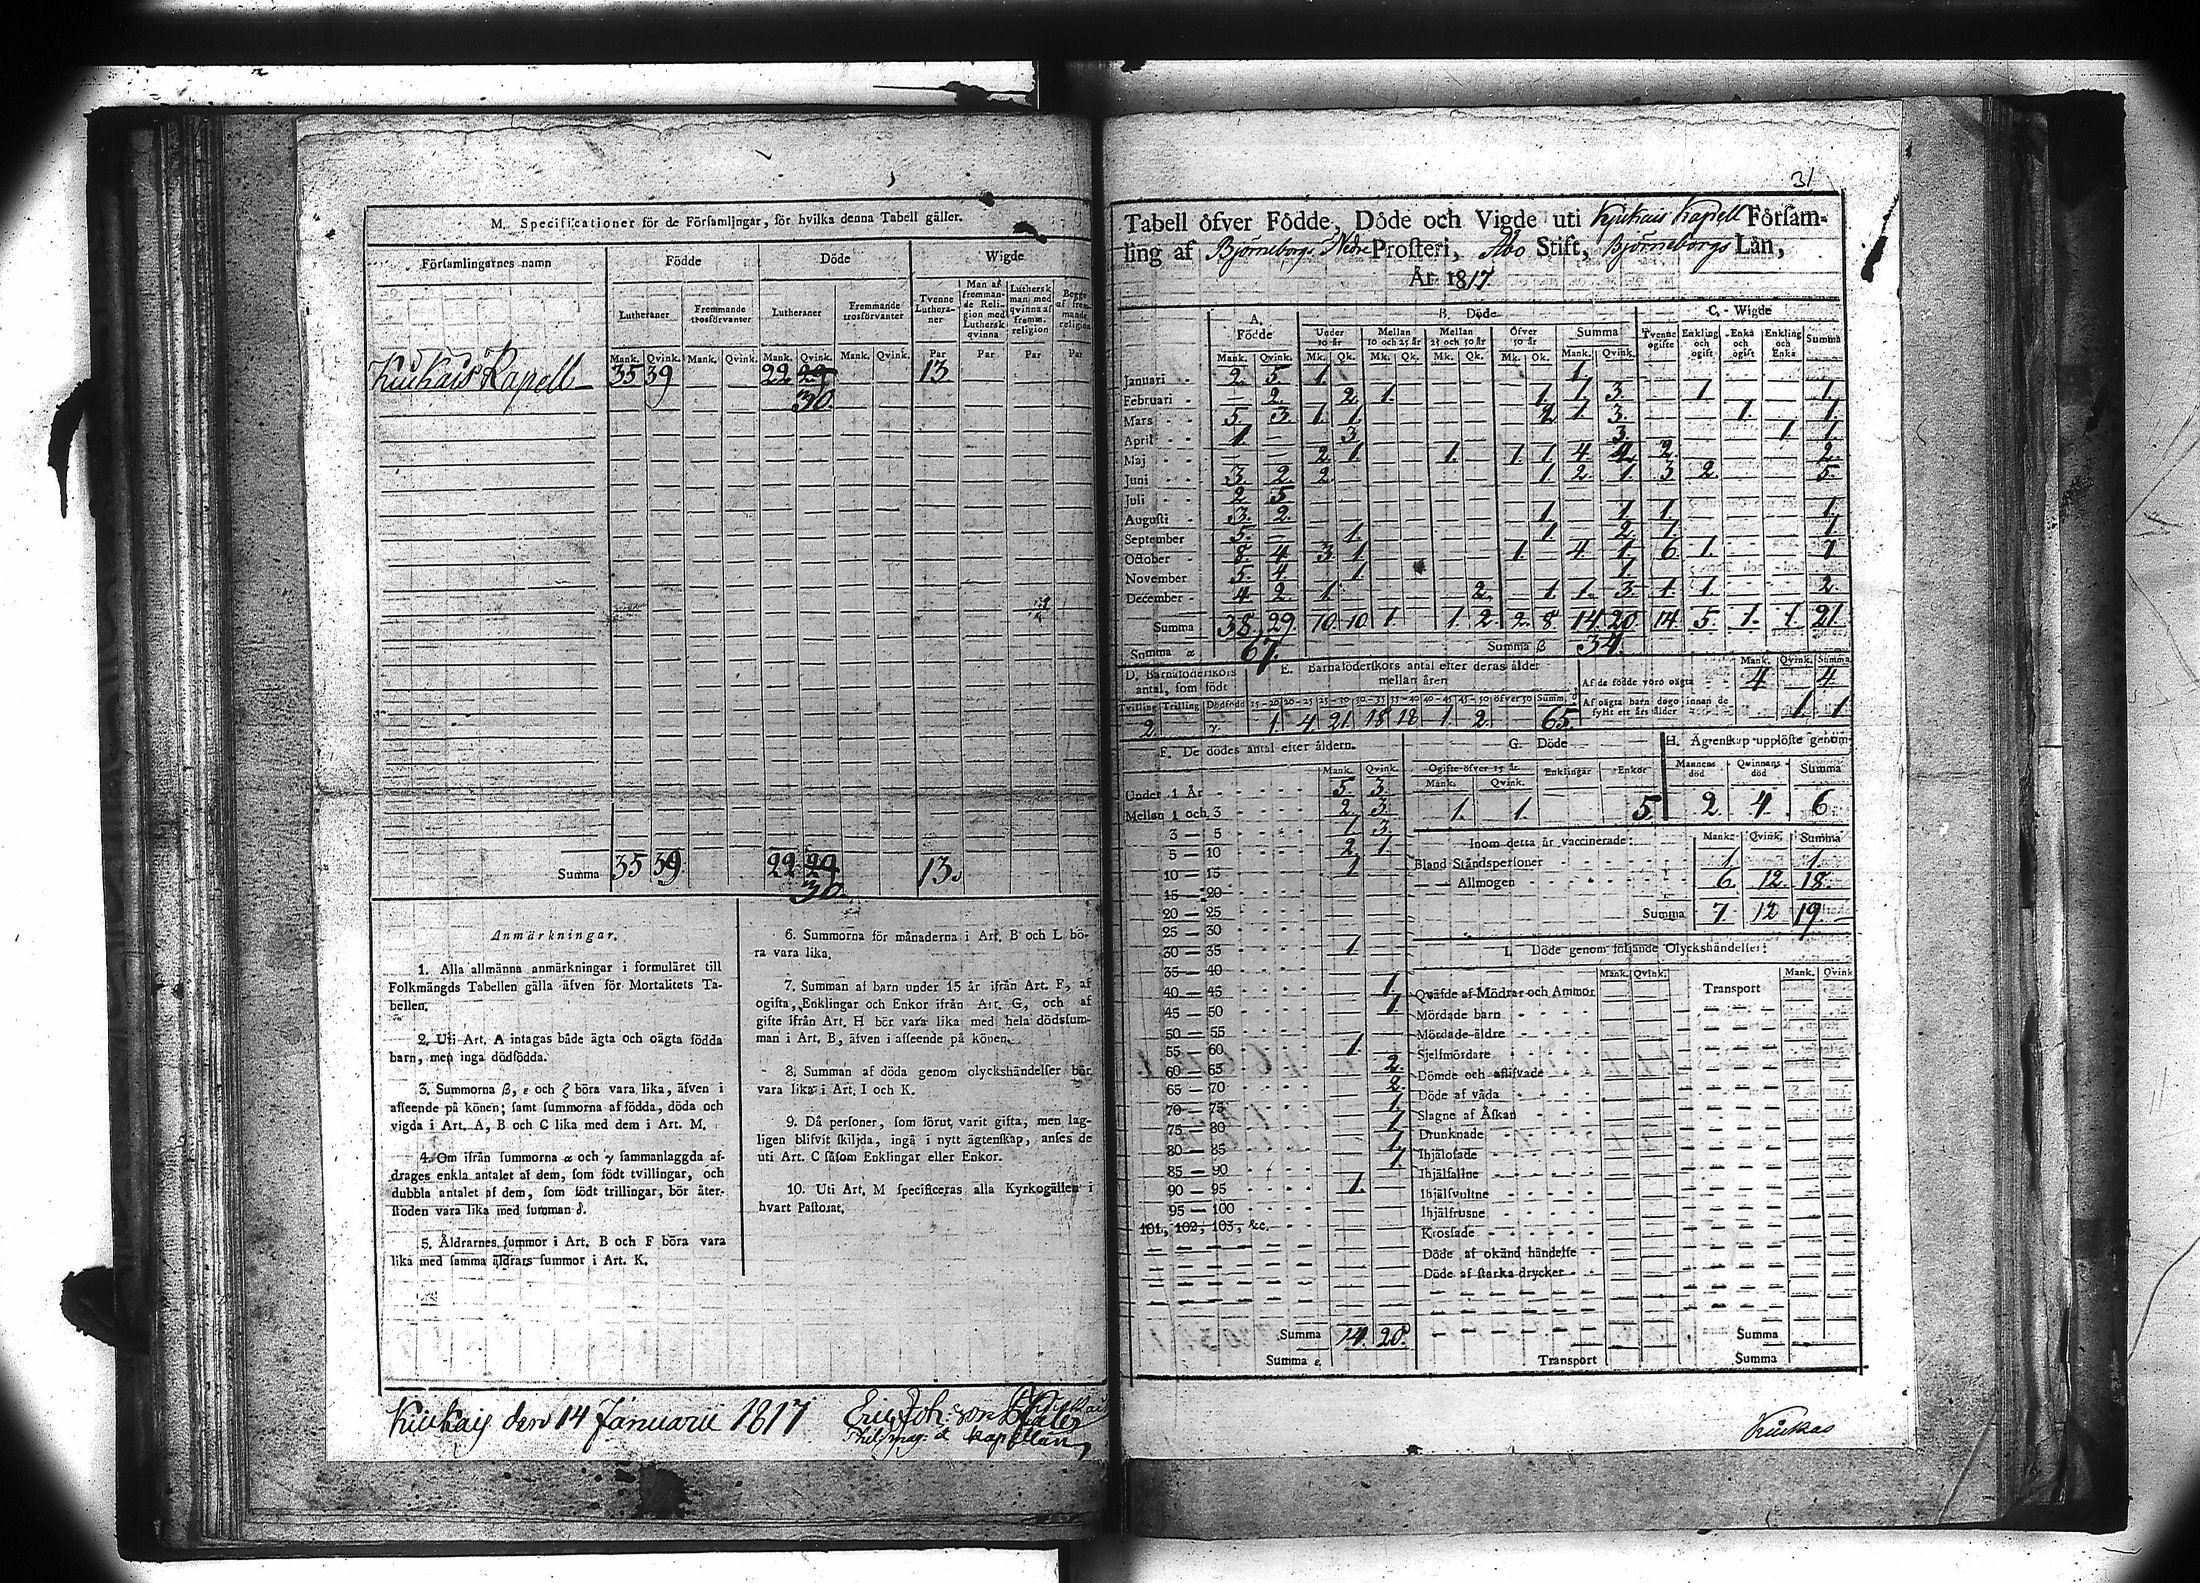 M. Specificationer för de Församlingar, för hvilka denna Tabell gäller.
Församlingarnes namn Födde Döde Wigde
Lutheraner Fremmande trosförvanter Lutheraner Fremmande trosförvanter Tvenne Lutheraner Man af fremmande Religion med Luthersk qvinna Luthersk man med qvinna af fremm. religion Begge af fremmande religion
Mank. Qvink. Mank. Qvink. Mank. Qvink. Mank. Qvink. Par Par Par Par
Kiukais Kapell 35 39 22 29 13
30.
Summa 35 39 22 29 13.
30
Anmärkningar.
1. Alla allmänna anmärkningar i formuläret till
Folkmängds Tabellen gälla äfven för Mortalitets Ta-
bellen.
2. Uti Art. A intagas både ägta och oägta födda
barn, men inga dödfödda.
3. Summorna ß, ε och ζ böra vara lika, äfven i
afseende på könen; samt summorna af födda, döda och
vigda i Art. A, B och C lika med dem i Art. M.
4. Om ifrån summorna α och γ sammanlaggda af-
drages enkla antalet af dem, som födt tvillingar, och
dubbla antalet af dem, som födt trillingar, bör åter-
stoden vara lika med summan δ.
5. Åldrarnes summor i Art. B och F böra vara
lika med samma åldrars summor i Art. K.
6. Summorna för månaderna i Art. B och L bö-
ra vara lika.
7. Summan af barn under 15 år ifrån Art. F, af
ogifta, Enklingar och Enkor ifrån Art. G, och af
gifte ifrån Art. H bör vara lika med hela dödssum-
man i Art. B, äfven i afseende på könen.
8. Summan af döda genom olyckshändelser bör
vara lika i Art. I och K.
9. Då personer, som förut varit gifta, men lag-
ligen blifvit skiljda, ingå i nytt ägtenskap, anses de
uti Art. C såsom Enklingar eller Enkor.
10. Uti Art. M specificeras alla Kyrkogällen i
hvart Pastorat.
Kiukais den 14 Januarii 1817
Kapellan
31
Tabell öfver Födde, Döde och Vigde uti Kiukais Kapell Försam-
ling af Björneborgs Nedre Prosteri, Åbo Stift, Björneborgs Län,
År 1817.
A. Födde B. Döde C. Wigde
Under 10 år Mellan 10 och 25 år Mellan 25 och 50 år Öfver 50 år Summa Tvenne ogifte Enkling och ogift Enka och ogift Enkling och Enka Summa
Mank. Qvink. Mk. Qk. Mk. Qk. Mk. Qk. Mk. Qk. Mank. Qvink.
Januari 2 5 1 1.
Februari 2 2 1 1 1 3 1 1
Mars 5 3 1 1 2 1 3 1 1
April 1 3 3 1 1
Maj 2 1 1 1 1 4 2 2 2
Juni 3 2 2 1 2 1 3 2 5
Juli 2 5
Augusti 3 2 1 1 1 1
September 5 1 1 2 1 1
October 8 4 3 1 1 4 1 6 1 7
November 5 4 1 1
December 4 2 1 2 1 1 3 1 1 2
Summa 38 29 10 10 1 1 2 2 8 14 20 14 5 1 1 21
Summa α 67. Summa ß 34.
D. Barnaföderskors antal, som födt
Tvilling Trilling Dödfödd
2 γ
E. Barnaföderskors antal efter deras ålder mellan åren
15-20 20-25 25-30 30-35 35-40 40-45 45-50 öfver 50 Summ. δ
1 4 21 18 18 1 2 65
Mank. Qvink. Summa
Af de födde voro oägta 4 4
Af oägta barn dogo innan de fyllt ett års ålder 1 1
F. De dödes antal efter åldern.
Mank. Qvink.
Under 1 År 5 3
Mellan 1 och 3 2 3
3 — 5 1 3
5 — 10 2 1
10 — 15 1
15 — 20
20 — 25
25 — 30
30 — 35 1
35 — 40
40 — 45 1
45 — 50 1
50 — 55
55 — 60 1
60 — 65 2
65 — 70 2
70 — 75 1
75 — 80 1
80 — 85 1
85 — 90 1
90 — 95 1
95 — 100
101, 102, 103, &c.
Summa 14 20
Summa ε
G. Döde
Ogifte öfver 15 år Enklingar Enkor
Mank. Qvink.
1. 1. 5
H. Ägtenskap upplöste genom
Mannens död Qvinnans död Summa
2 4 6
Inom detta år vaccinerade: Mank. Qvink. Summa
Bland Ståndspersoner 1 1
— — Allmogen 6 12 18
Summa 7 12 19
I. Döde genom följande Olyckshändelser:
Mank. Qvink. Mank. Qvink
Qväfde af Mödrar och Ammor Transport
Mördade barn
Mördade äldre
Sjelfmördare
Dömde och aflifvade
Döde af våda
Slagne af Åskan
Drunknade
Ihjälosade
Ihjälfallne
Ihjälsvultne
Ihjälfrusne
Krossade
Döde af okänd händelse
Döde af starka drycker
Summa
Transport Summa
Kiukas